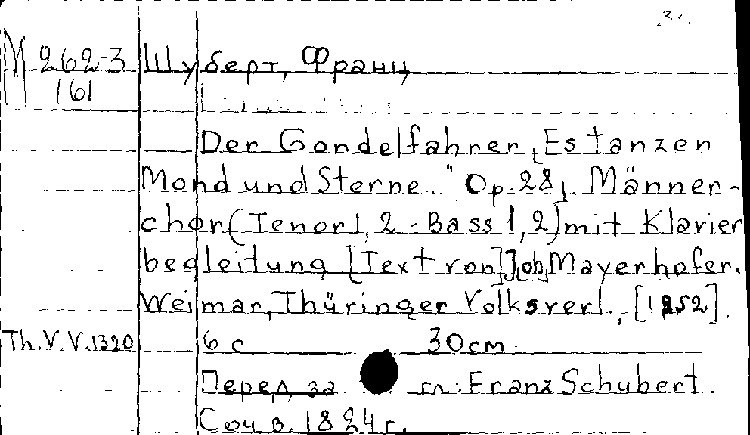 М 262-3 Шуберт, Франц
161
Der Gondelfahrer „Es tanzen
Mond und Sterne.." Op. 28, Männer-
chor (Tenor 1, 2 - Bass 1, 2) mit Klavier
begleitung [Text von] J[oh] Mayerhofer.
Weimar, Thüringer Volksverl., [1952].
Th.V.V.1320 6 с 30 cm.
Перед загл: Franz Schubert.
Соч в. 1824 г.